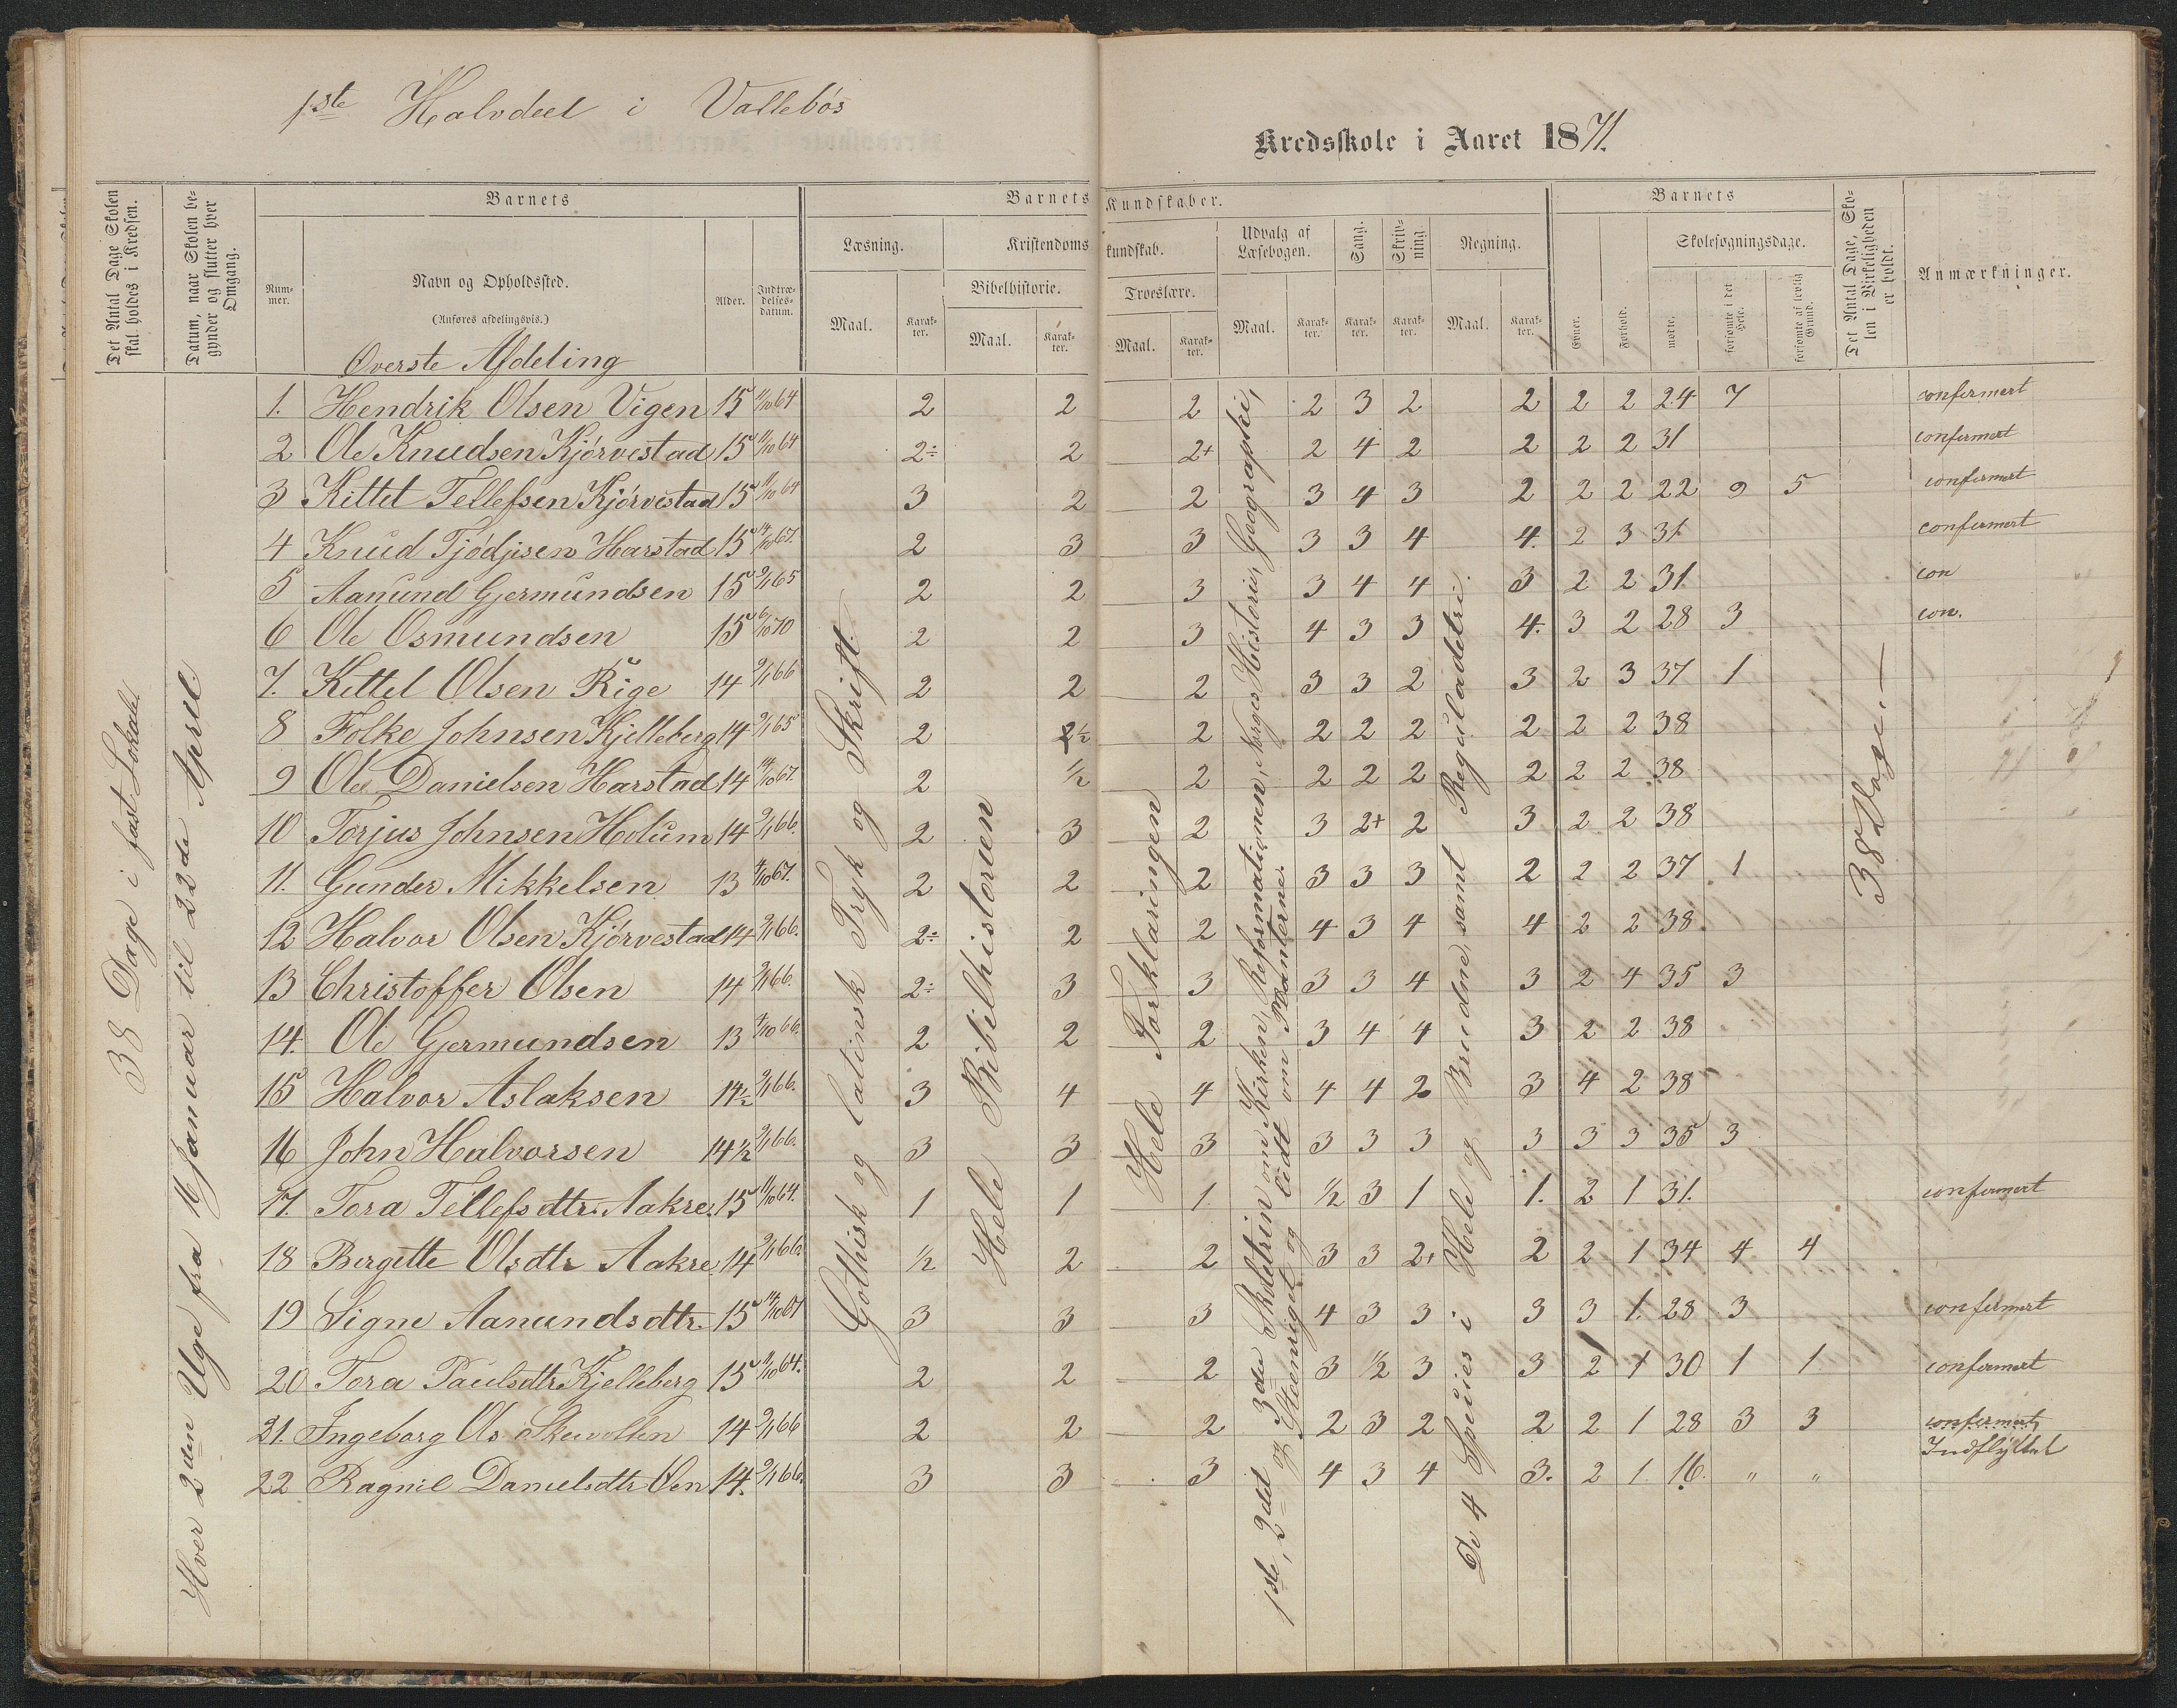 1ste Halvdeel i Vallebös
Kredsskole i Aaret 1871.
Det Antal Dage Skolen skal holdes i Kredsen.
Datum, naar Skolen begynder og slutter hver Omgang.
Barnets
Barnets Kundskaber.
Barnets
Det Antal Dage, Skolen i Virkeligheden er holdt.
Anmærkninger.
Nummer.
Navn og Opholdssted.
(Anføres afdelingsvis.)
Alder.
Indtrædelsesdatum.
Læsning.
Kristendomskundskab.
Udvalg af Læsebogen.
Sang.
Skrivning.
Regning.
Evner.
Forhold.
Skolesøgningsdage.
Bibelhistorie.
Troeslære.
mødte.
forsømte i det Hele.
forsømte af lovlig Grund.
Maal. Karakter. Maal. Karakter. Maal. Karakter. Maal. Karakter. Karakter. Karakter. Maal. Karakter.
Øverste Afdeling
38 Dage i fast Lokale
Hver 2den Uge fra 16 Januar til 22de April.
Gothisk og latinsk Tryk og Skrift.
Hele Bibelhistorien
Hele Forklaringen
1ste, 2det 3de Skoletrin om Kirken, Reformationen, Norges Historie, Geographi,
og Steenriget og lidt om Planterne.
De 4 Species i Hele og Brudne, samt Reguladetri.
38 Dage.—
1. Hendrik Olsen Vigen 15 11/10 64 2 2 2 2 3 2 2 2 2 24 7 confermert
2 Ole Knudsen Kjörvestad 15 11/10 64 2÷ 2 2+ 2 4 2 2 2 2 31 confermert
3 Kittel Tellefsen Kjörvestad 15 11/10 64 3 2 2 3 4 3 2 2 2 22 9 5 confermert
4 Knud Tjödjisen Harstad 15 14/10 67. 2 3 3 3 3 4 4. 2 3 31 confermert
5 Aanund Gjermundsen 15 9/1 65 2 2 3 3 4 4 3 2 2 31. con
6 Ole Osmundsen 15 6/10 70 2 2 3 4 3 3 4. 3 2 28 3 con.
7. Kittel Olsen Rige 14 9/1 66 2 2 2 3 3 2 3 2 3 37 1
8 Folke Johnsen Kjelleberg 14 9/1 65 2 2½ 2 2 2 2 2 2 2 38
9 Ole Danielsen Harstad 14 14/10 67. 2 ½ 2 2 2 2 2 2 2 38
10 Torjus Johnsen Holum 14 9/1 66. 2 3 2 3 2+ 2 3 2 2 38
11. Gunder Mikkelsen 13 4/10 67. 2 2 2 3 3 3 2 2 2 37 1
12 Halvor Olsen Kjörvestad 14 9/1 66. 2÷ 2 2 4 3 4 4 2 2 38.
13 Christoffer Olsen 14 9/1 66. 2÷ 3 3 3 3 4 3 2 4 35 3
14. Ole Gjermundsen 13 4/10 66. 2 2 2 3 4 4 3 2 2 38
15 Halvor Aslaksen 14½ 9/1 66. 3 4 4 4 4 2 3 4 2 38
16 John Halvorsen 14½ 9/1 66. 3 3 3 3 3 3 3 3 3 35 3
17. Tora Tellefsdtr. Aakre. 15 11/10 64. 1 1 1. ½ 3 1 1. 2 1 31. confermert
18 Bergette Olsdtr Aakre 14 9/1 66. ½ 2 2 3 3 2+ 2 2 1 34 4 4
19 Signe Aanundsdtr. 15 14/10 67 3 3 3 4 3 3 3 3 1. 28 3 confermert
20 Tora Paulsdtr Kjelleberg 15 11/10 64. 2 2 2 3 ½ 3 3 2 1 30 1 1. confermert
21. Ingeborg Ols 14 9/1 66 2 2 2 2 3 2 2 2 1 28 3 3 confermert
22 Ragnil Danielsdtr 14. 9/1 66. 3 3 3 4 3 4 3. 2 1. 16. " " Indflyttet